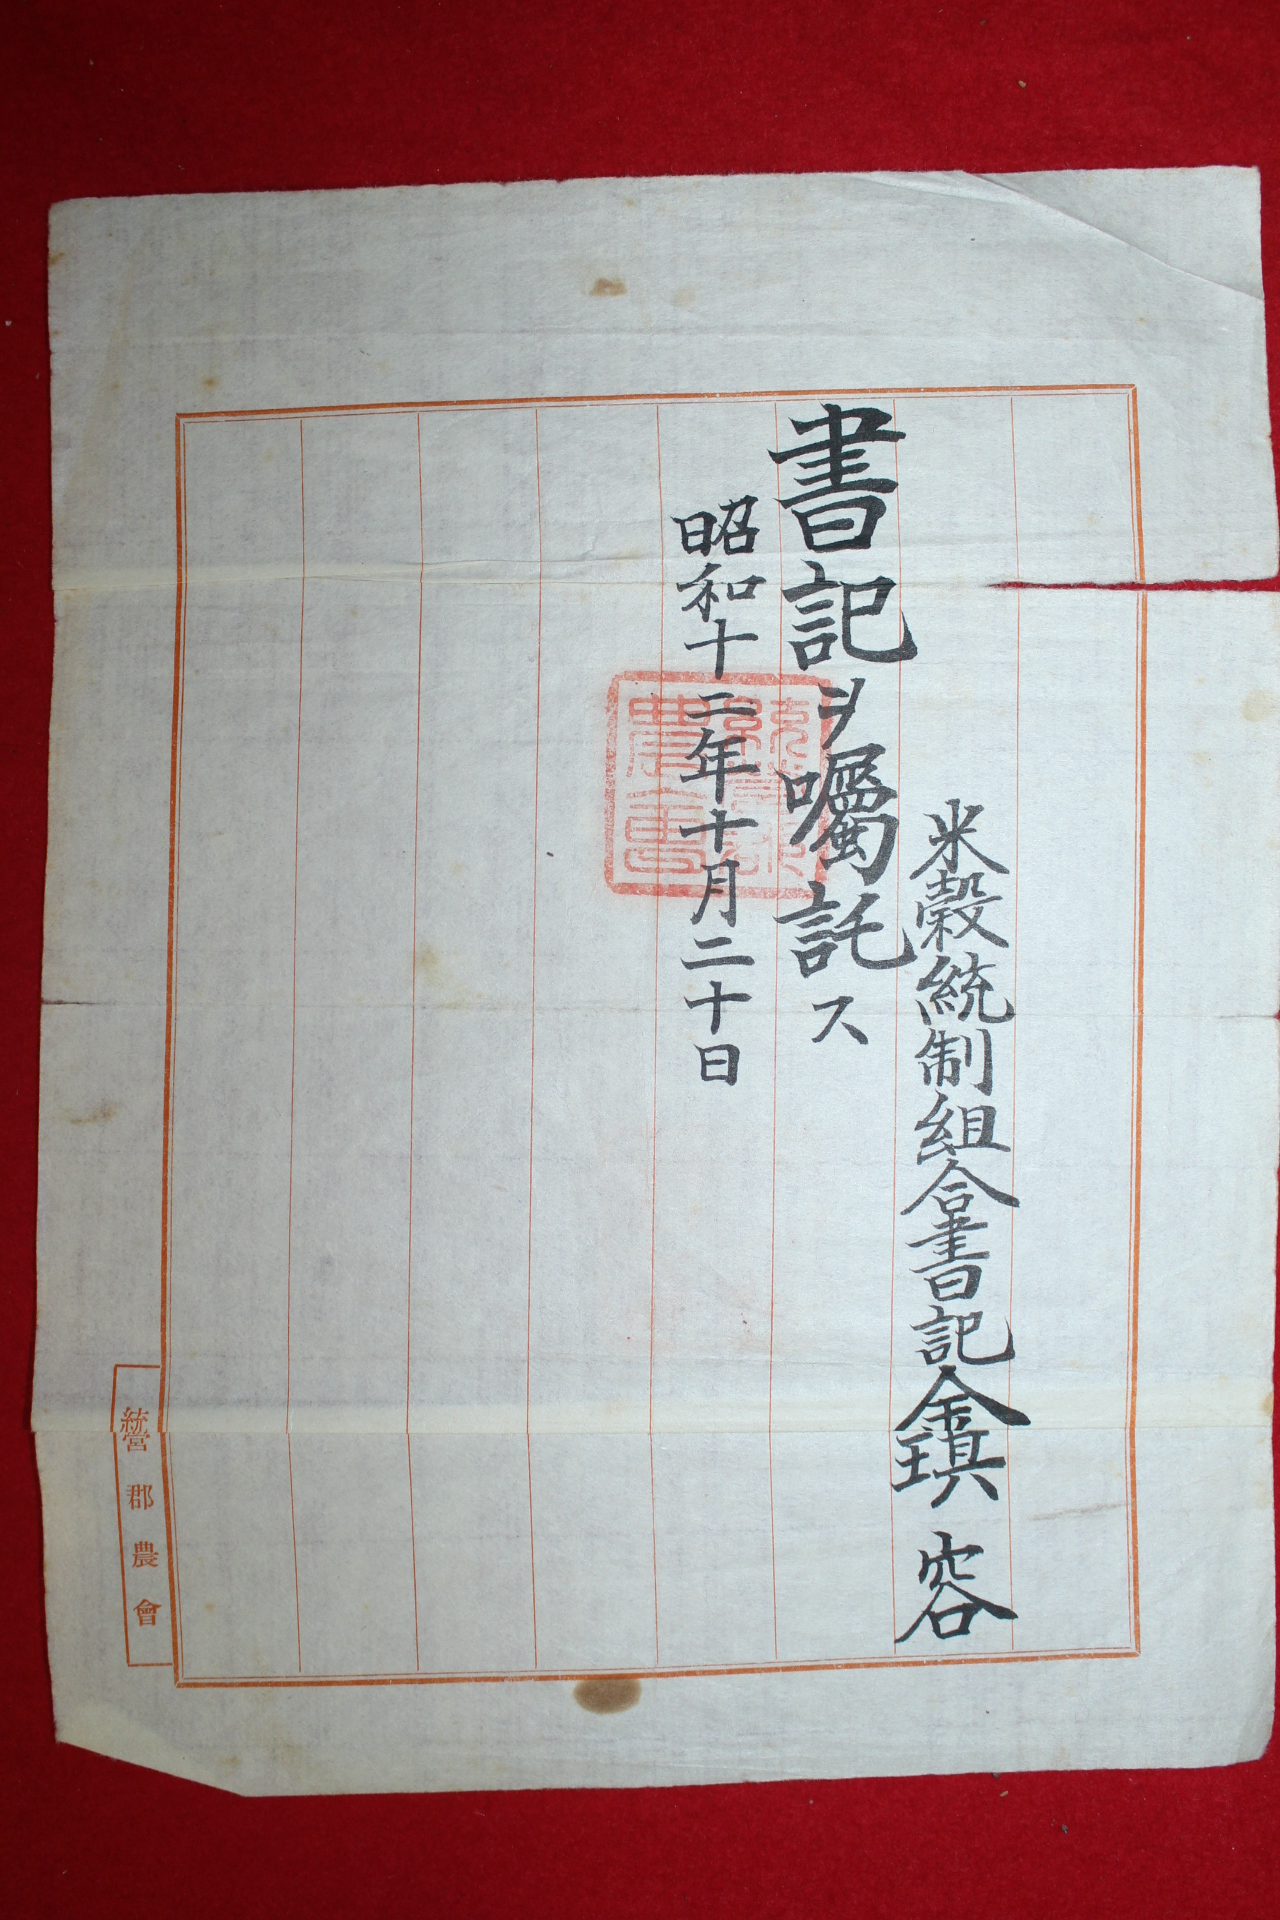 米穀統制組合書記 金琪容
書記ヲ囑託ス
昭和十二年十月二十日
統營郡農會
統營郡
農會